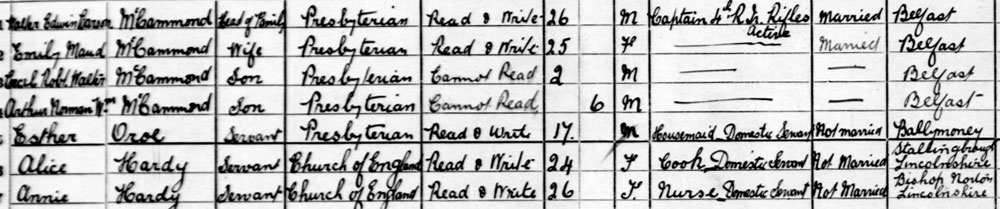 Walter Edwin Carson McCammond Head of Family Presbyterian Read & Write 26 M Captain 4th R. Ir. Rifles Active Married Belfast
Emily Maud McCammond Wife Presbyterian Read & Write 25 F Married Belfast
Cecil Robt. Walker McCammond Son Presbyterian Cannot Read 2 M Belfast
Arthur Norman Wm McCammond Son Presbyterian Cannot Read 6 M Belfast
Esther Oroe Servant Presbyterian Read & Write 17. Housemaid Domestic Servant Not married Ballymoney
Alice Hardy Servant Church of England Read & Write 24 F Cook Domestic Servant Not Married Lincolnshire
Annie Hardy Servant Church of England Read & Write 26 F. Nurse Domestic Servant Not Married Bishop Norton Lincolnshire